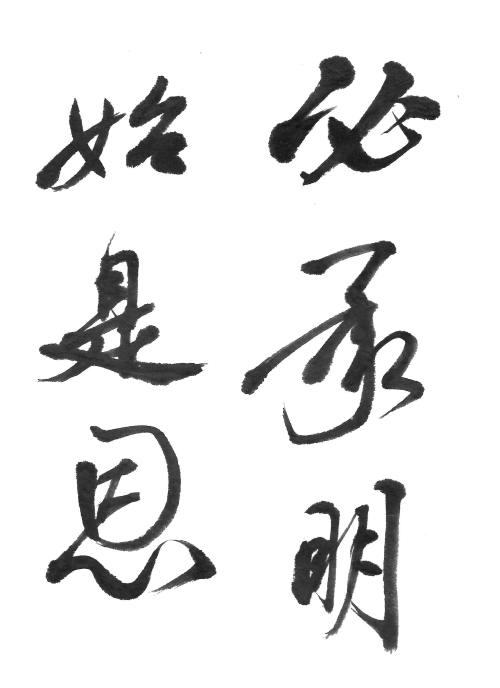 必承明
始是恩